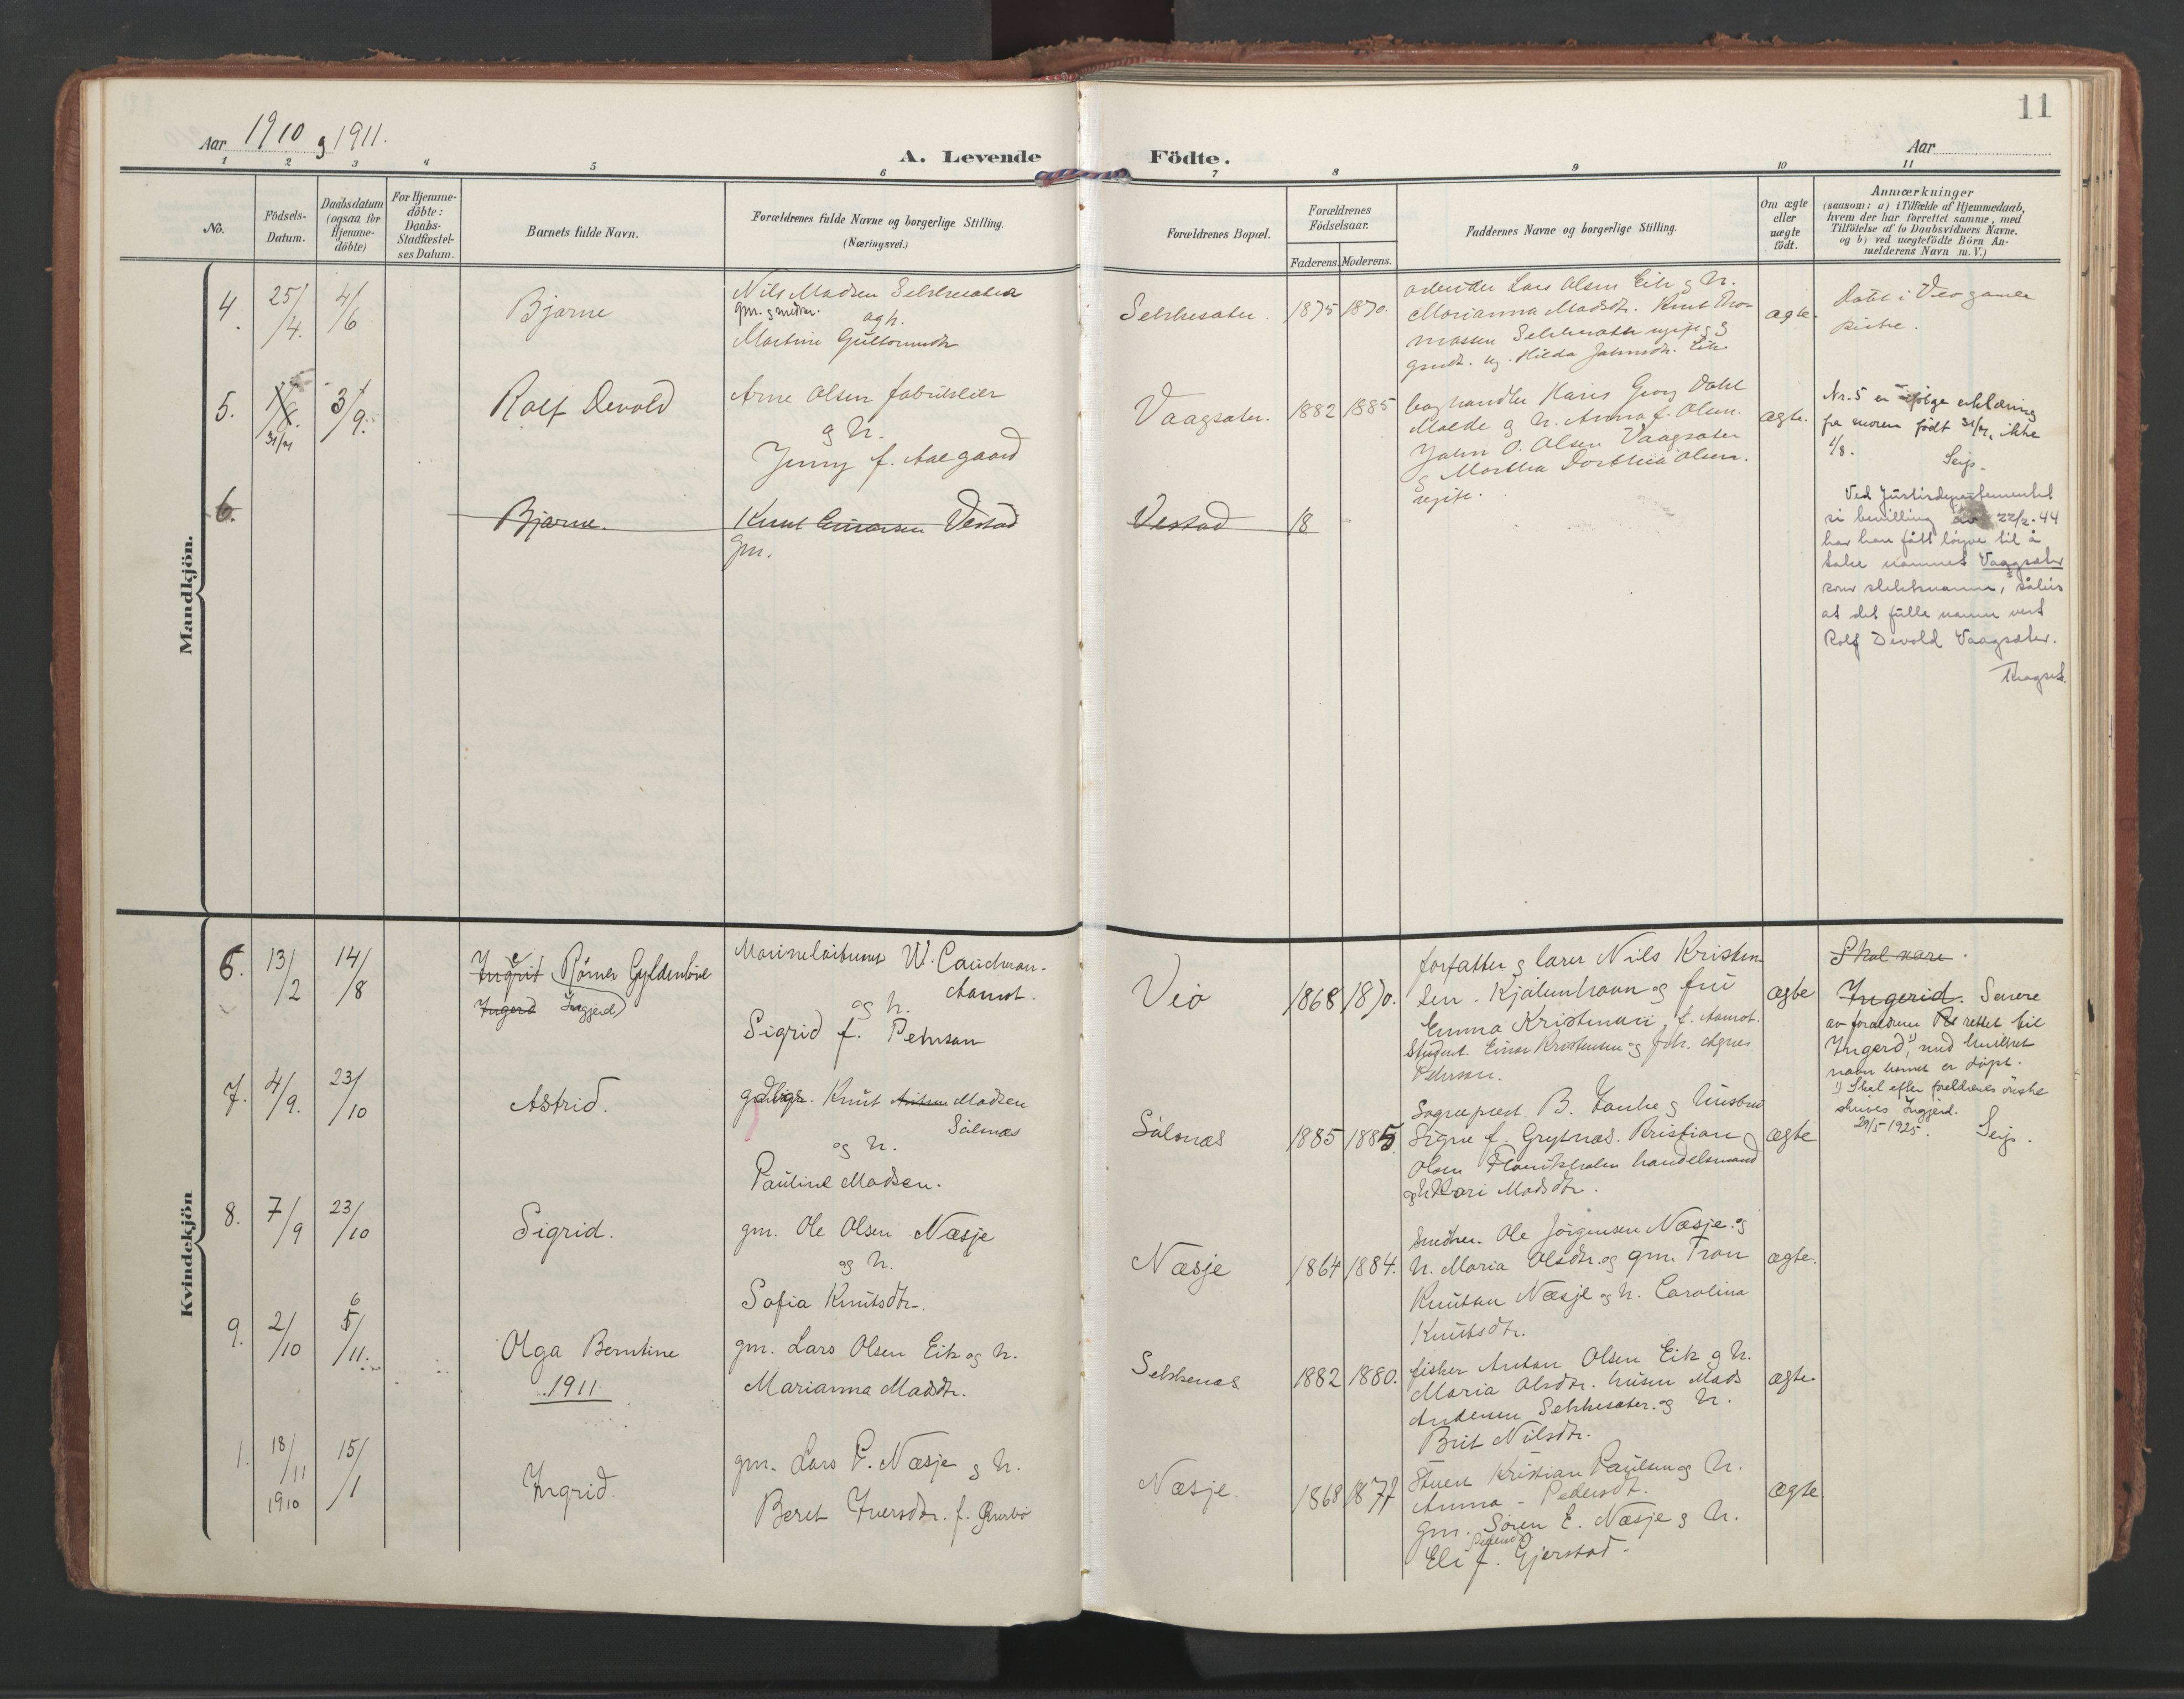 11
Aar 1910 og 1911.
A. Levende Födte.
Aar
1 2 3 4 5 6 7 8 9 10 11
No.
Födsels-Datum.
Daabsdatum (ogsaa for Hjemme-döbte)
For Hjemme-döbte: Daabs-Stadfæstel-ses Datum.
Barnets fulde Navn.
Forældrenes fulde Navne og borgerlige Stilling.
(Næringsvei.)
Forældrenes Bopæl.
Forældrenes Födselsaar.
Faderens. Moderens.
Faddernes Navne og borgerlige Stilling.
Om ægte eller uægte födt.
Anmærkninger
(saasom: a) i Tilfælde af Hjemmedaab,
hvem der har forrettet samme, med
Tilföielse af to Daabsvidners Navne,
og b) ved uægtefödte Börn An-
melderens Navn m. V.)
Mandkjön.
4. 25/4. 4/6 Bjarne
Nils Madsen Selkesæter
gm. og
Martini Guttormsdtr
Selkesæter. 1875 1870.
Lars Olsen Eik og h.
Marianna Madsdtr. Knut Tho-
massen
Hilda Johnsdtr. Eik
ægte.
Døbt i Veø gamle
kirke.
5. 1/8. 31/7 3/9. Rolf Devold
Arne Olsen fabrikeier
og h.
Jenny f. Aaegaard
Vaagsæter. 1882 1885
boghandler Hans Georg Dahl
Molde og h. Anna f. Olsen.
John O. Olsen Vaagsæter
og Martha Dorthea Olsen.
ugift.
ægte.
Nr. 5 er ifølge erklæring
fra moren født 31/7, ikke
1/8. Seip.
Ved Justisdepartementet
si bevilling av 22/2-44
har han fått løyve til å
take namnet Vaagsæter
som slektsnamn, såleis
at det fulle namn vert
Rolf Devold Vaagsæter.
6. Bjarne. Knut Einarsen Vestad
gm.
Vestad 18
Kvindekjön
6. 13/2 14/8 Ingrid (Römer Gyldenløve
Ingerd Ingjerd)
Marineløitnant W. Coucheron-
Aamot.
og h.
Sigrid f. Petersson
Veø 1868 1870.
forfatter og lærer Niels Kristen-
sen - Kjøbenhavn og fru
Emma Kristensen, f. Aamot.
Student Einar Kristensen og frk. Agnes
Peterson.
ægte
Skal være.
Ingerid. Senere
av forældrene rettet til
Ingerd¹⁾, med hvilket
navn barnet er døpt.
¹⁾ Skal efter forældrenes ønske
skrives Ingjerd.
29/5 1925. Seip.
7. 4/9. 23/10 Astrid.
Knut Madsen
Sølsnæs
og h.
Pauline Madsen.
Sølsnæs 1885 1885.
Sogneprest B. Tanke og hustru
Signe f. Grytnæs. Kristian
Olsen handelsmand
og h. Kari Madsdtr.
ægte
8. 7/9 23/10 Sigrid.
gm. Ole Olsen Næsje
og h.
Sofia Knutsdtr.
Næsje 1864 1884.
Ole Jørgensen Næsje og
h. Maria Olsdtr. og gm. Tron
Knutsen Næsje og h. Carolina
Knutsdtr.
ægte.
9. 2/10 6 5/11. Olga Berntine
gm. Lars Olsen Eik og h.
Marianna Madsdtr.
Selkenæs 1882 1880.
fisker Anton Olsen Eik og h.
Maria Olsdtr. husm. Mads
Andersen Selkesæter. og h.
Brit Nilsdtr.
ægte.
1911
1. 18/11 1910 15/1 Ingrid.
gm. Lars P. Næsje og h.
Beret Iversdtr. f.
Næsje. 1868 1877
Kristian Paulsen og h.
Anna - Pedersdt.
gm. Søren E. Næsje og h.
Pedersdtr
Eli f. Gjerstad.
ægte.